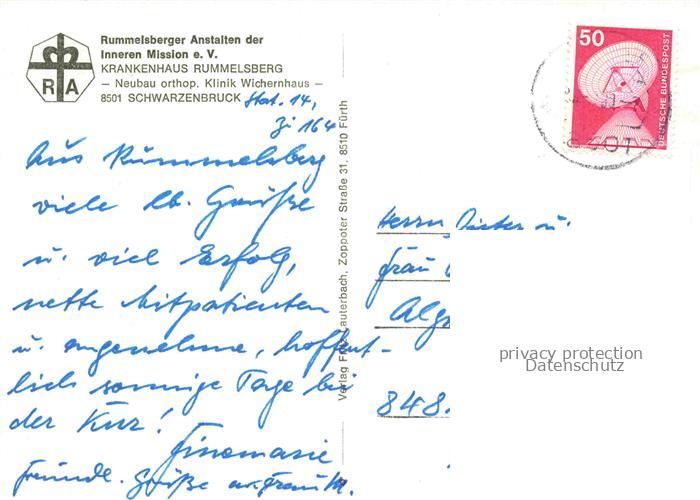 Rummelsberger Anstalten der
Inneren Mission e. V.
KRANKENHAUS RUMMELSBERG
– Neubau orthop. Klinik Wichernhaus –
8501 SCHWARZENBRUCK Stat. 14,
Zi 164
R A
Aus Rummelsberg
viele lb. Grüße
u. viel Erfolg,
nette Mitpatienten
u. angenehme, hoffent-
lich sonnige Tage bei
der Kur!
Freundl. Grüße an Frau M.
Verlag Lauterbach, Zoppoter Straße 31, 8510 Fürth
50
DEUTSCHE BUNDESPOST
Herrn Dieter u.
Frau
848.
privacy protection
Datenschutz